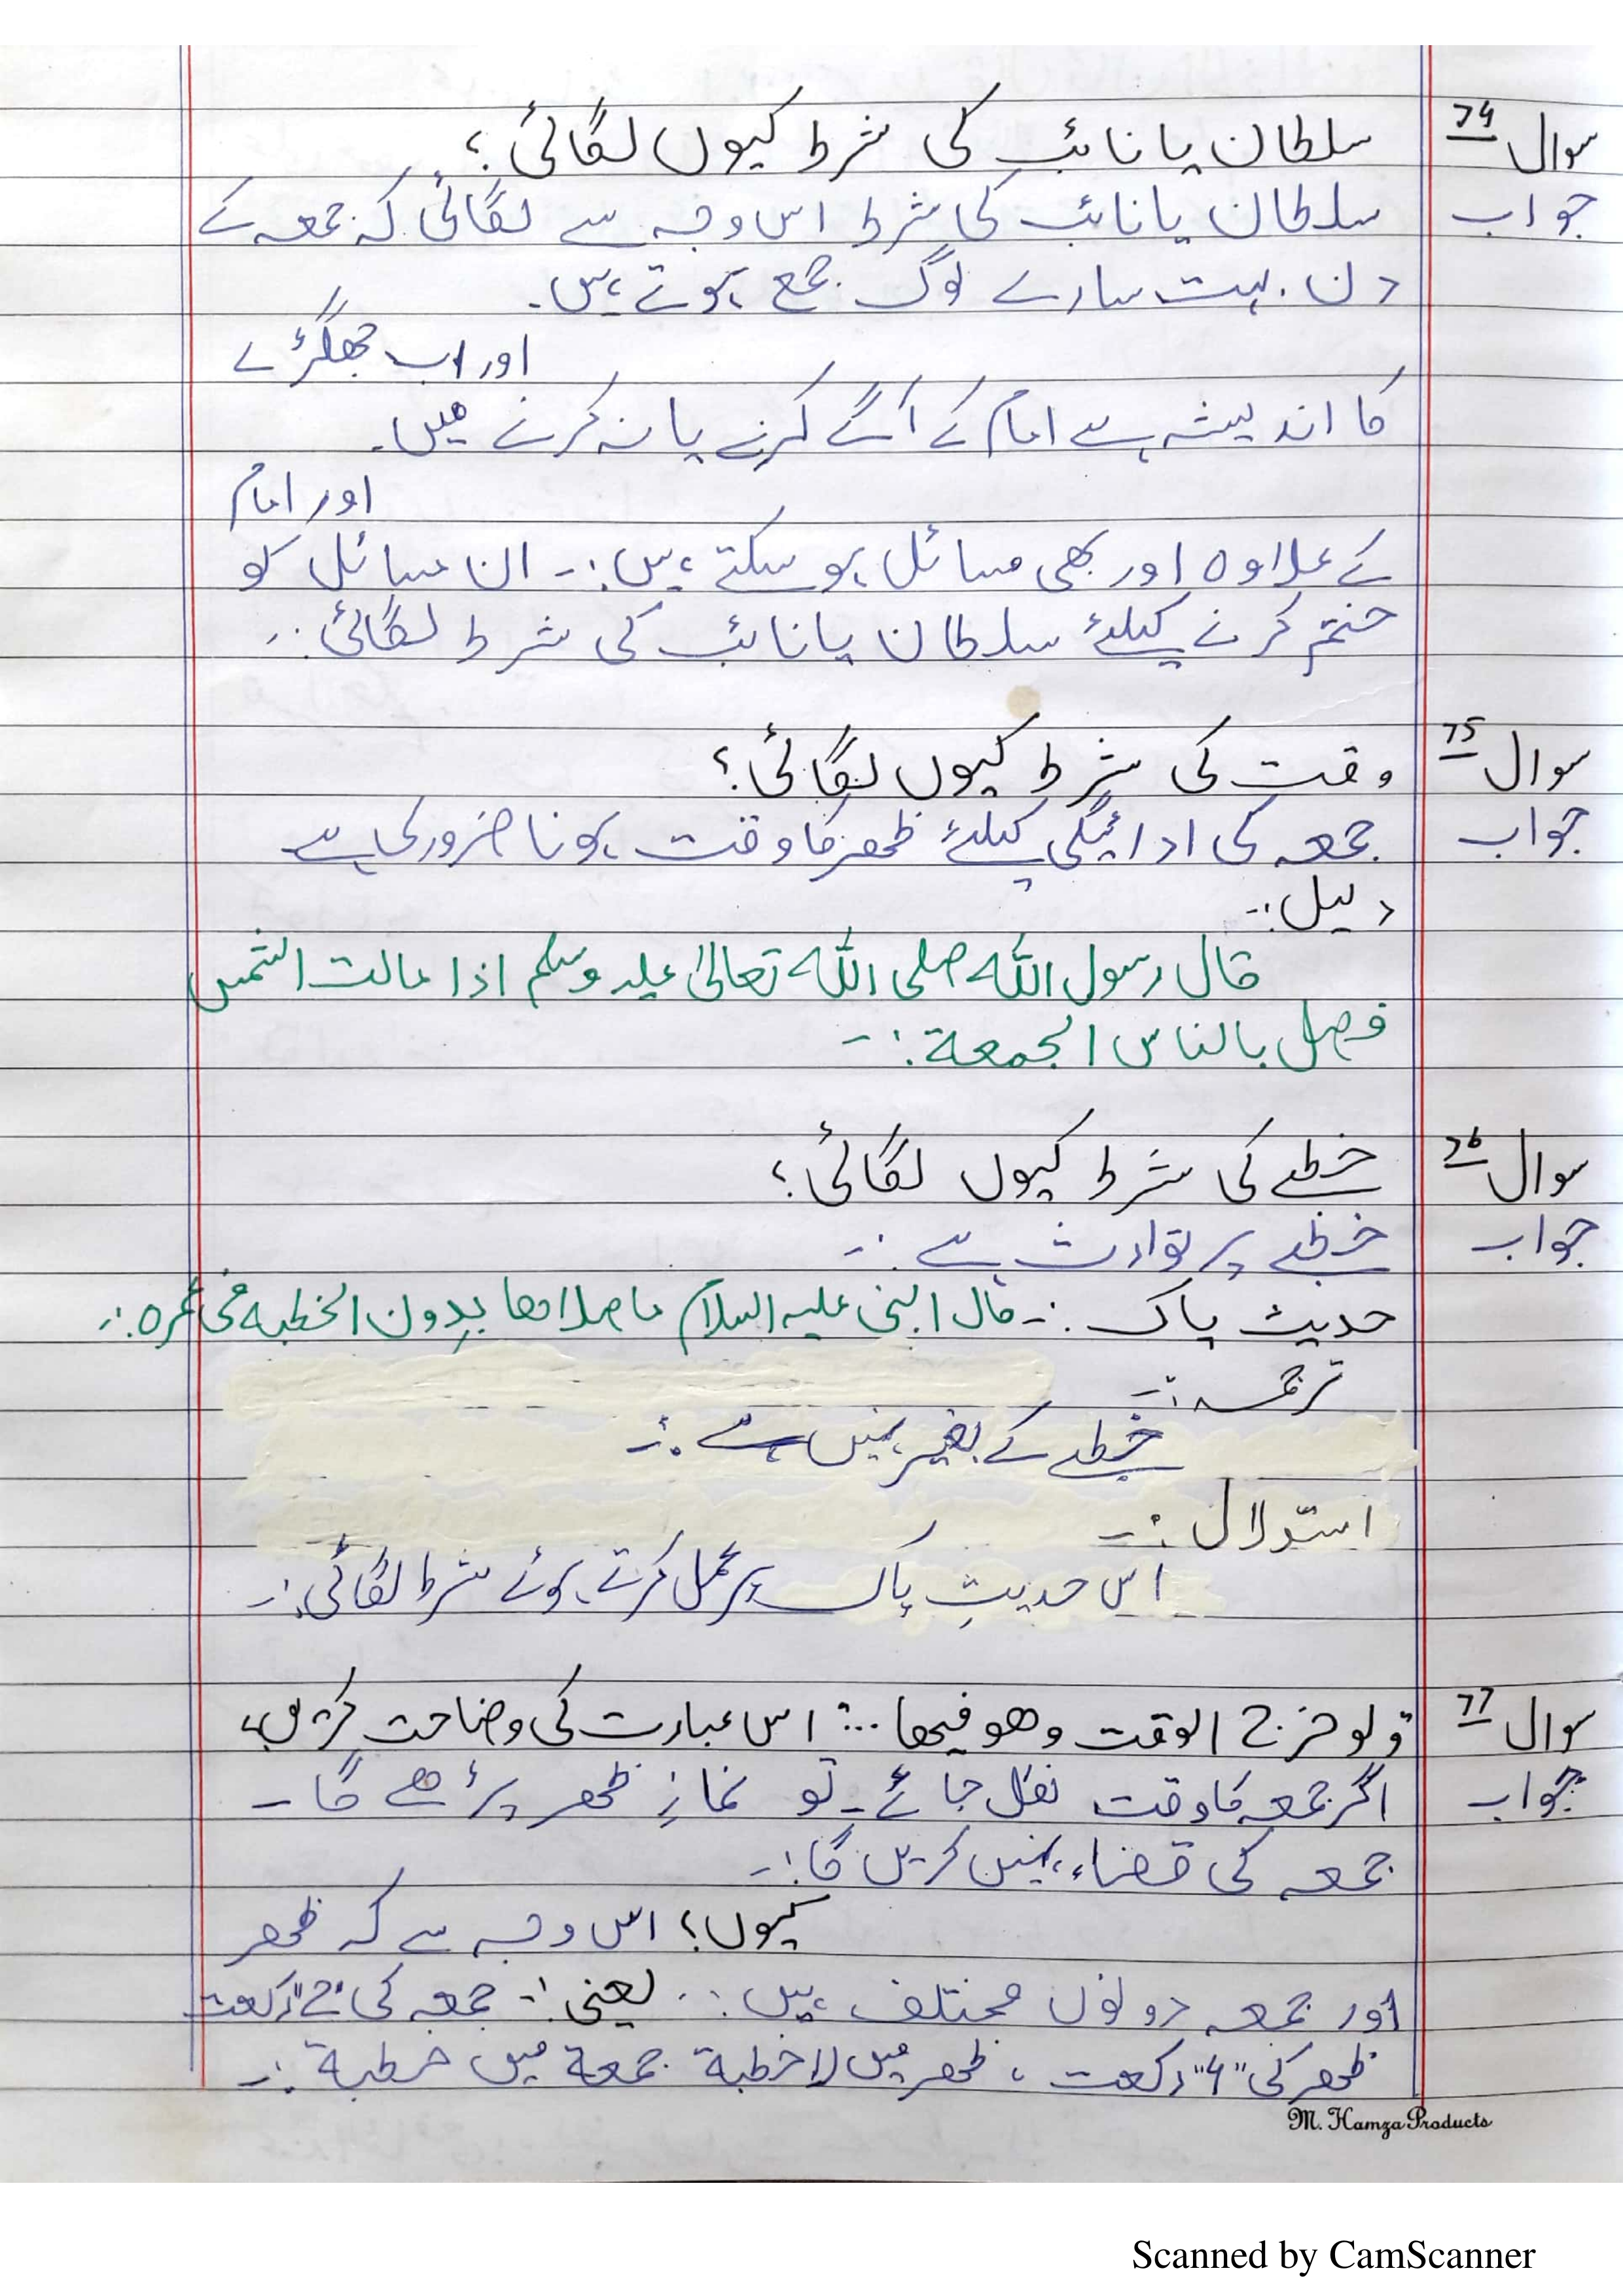 سوال 74 سلطان یا نائب کی شرط کیوں لگائی؟
جواب سلطان یا نائب کی شرط اس وجہ سے لگائی کہ جمعہ کے
دن بہت سارے لوگ جمع ہوتے ہیں۔
اور اب جھگڑے
کا اندیشہ ہے امام کے آگے کرنے یا نہ کرنے میں۔
اور امام
کے علاوہ اور بھی مسائل ہو سکتے ہیں:۔ ان مسائل کو
ختم کرنے کیلئے سلطان یا نائب کی شرط لگائی:۔
سوال 75 وقت کی شرط کیوں لگائی؟
جواب جمعہ کی ادائیگی کیلئے ظھر کا وقت ہونا ضروری ہے
دلیل:۔
قال رسول اللہ صلی اللہ تعالیٰ علیہ وسلم اذا مالت الشمس
فصل بالناس الجمعة:۔
سوال 76 خطبے کی شرط کیوں لگائی؟
جواب خطبے پر توارث ہے:۔
حدیث پاک:۔ قال النبی علیہ السلام ما صلاھا بدون الخطبہ فی عمرہ:۔
ترجمہ:۔
خطبے کے بغیر نہیں ہے:۔
استدلال:۔
اس حدیثِ پاک پر عمل کرتے ہوئے شرط لگائی:۔
سوال 77 و لو خرج الوقت وھو فیھا ...: اس عبارت کی وضاحت کریں؟
جواب اگر جمعہ کا وقت نکل جائے۔ تو نمازِ ظھر پڑھے گا۔
جمعہ کی قضاء نہیں کریں گا:۔
کیوں؟ اس وجہ سے کہ ظھر
اور جمعہ دونوں مختلف ہیں:۔ یعنی:۔ جمعہ کی "2" رکعت
ظھر کی "4" رکعت ، ظھر میں لا خطبة جمعة میں خطبة:۔
M. Hamza Products
Scanned by CamScanner